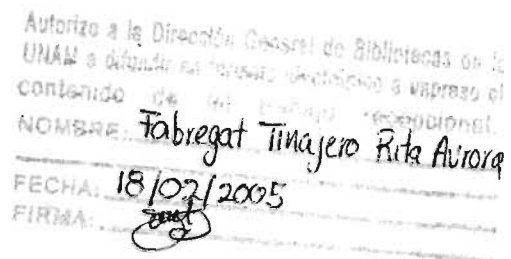 Autorizo a la Dirección General de Bibliotecas de la
UNAM a difundir en formato electrónico e impreso el
contenido de mi trabajo recepcional.
NOMBRE: Fabregat Tinajero Rita Aurora
FECHA: 18/02/2005
FIRMA: